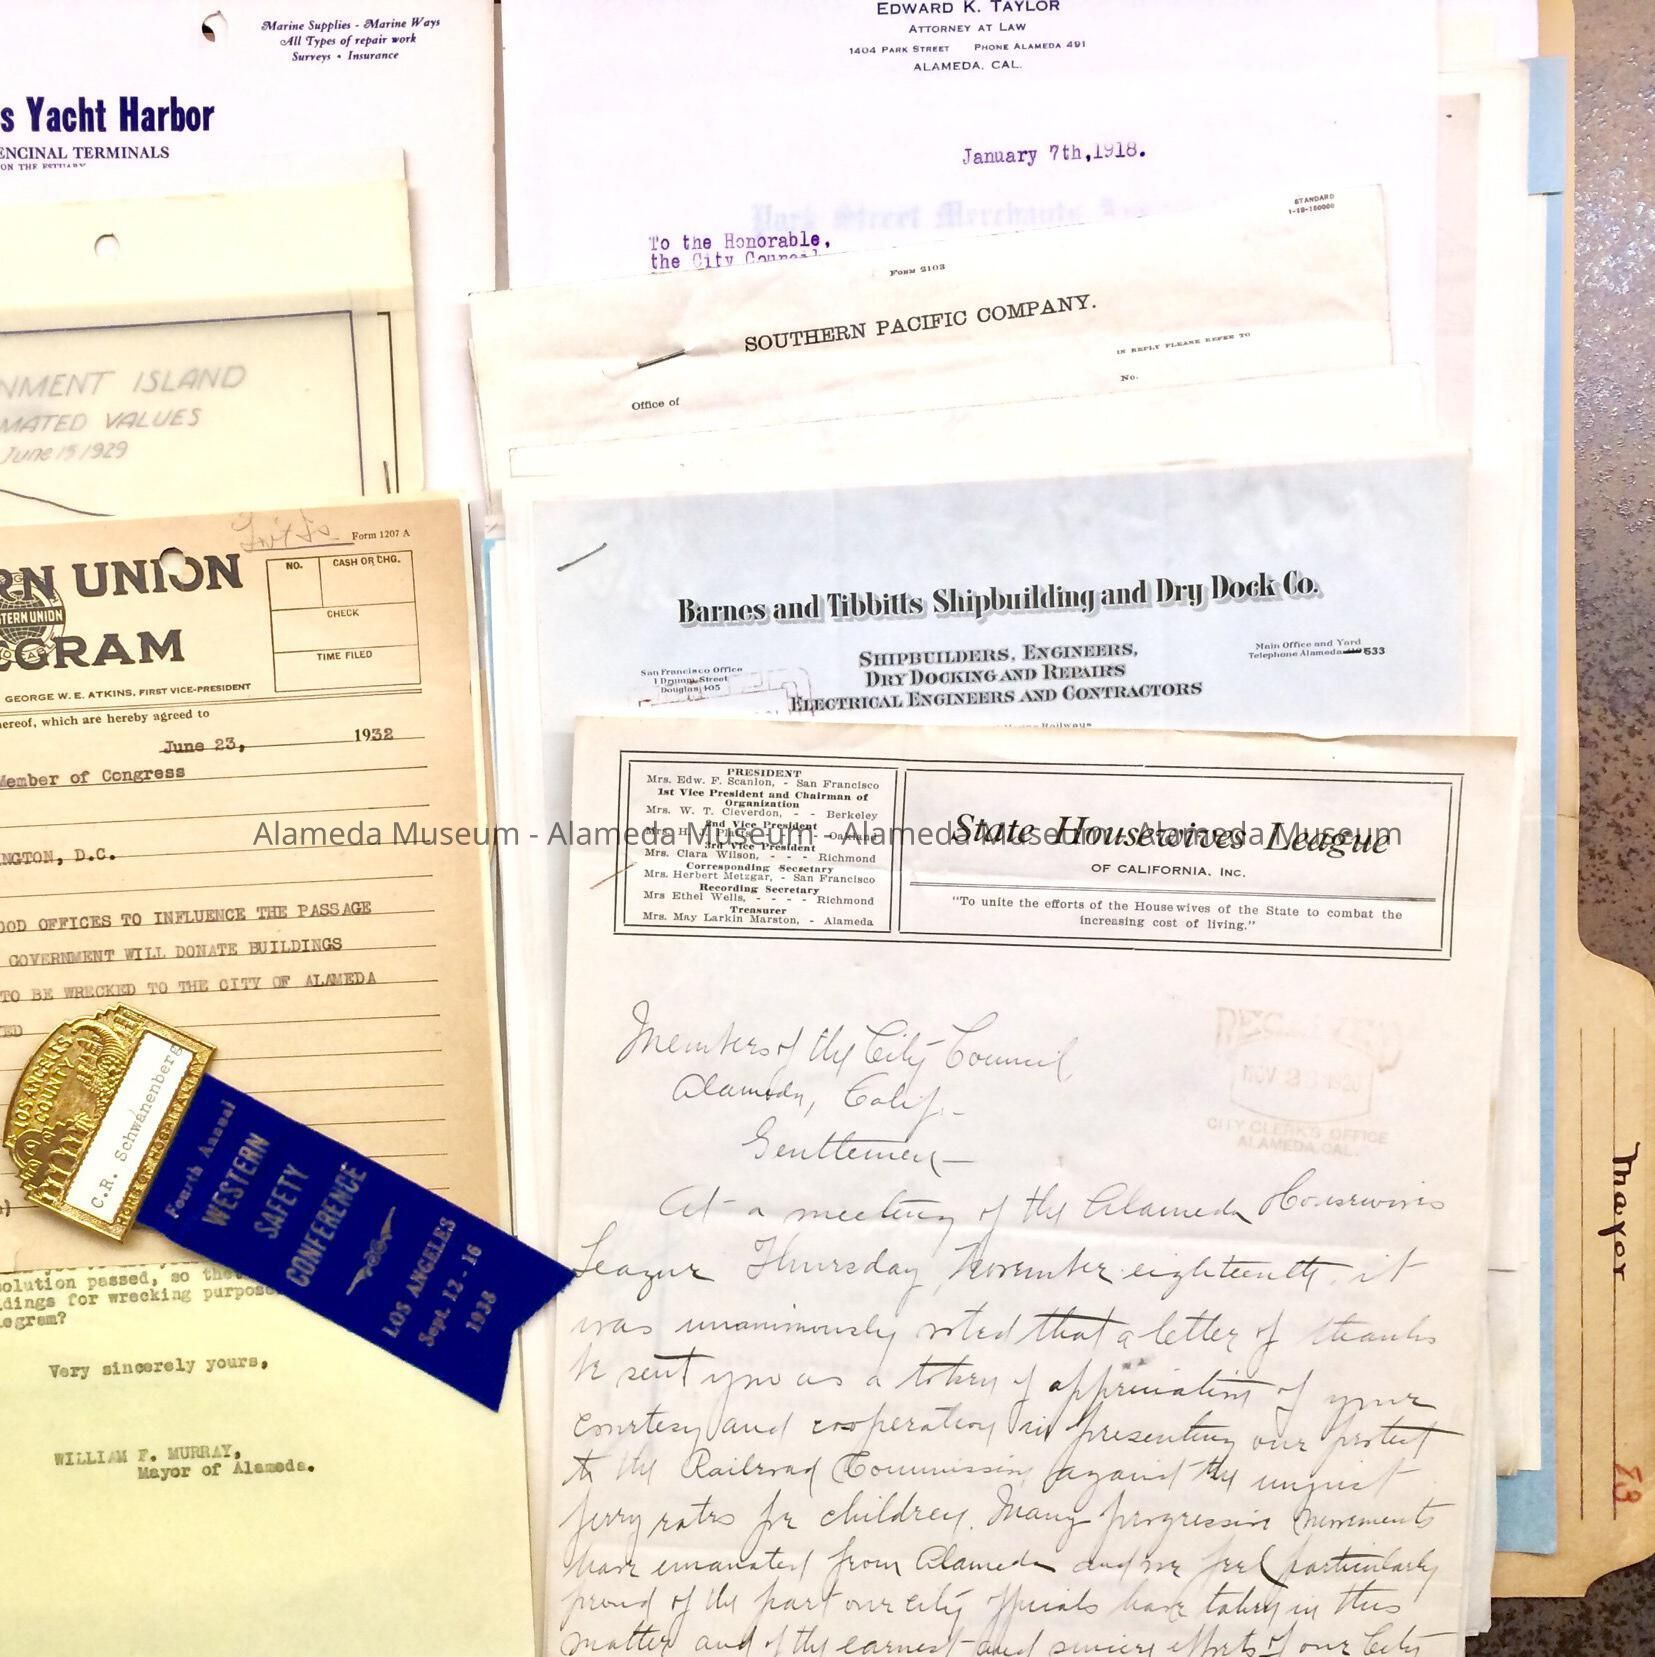 Marine Supplies - Marine Ways
All Types of repair work
Surveys • Insurance
s Yacht Harbor
ENCINAL TERMINALS
ON THE ESTUARY
EDWARD K. TAYLOR
ATTORNEY AT LAW
1404 PARK STREET PHONE ALAMEDA 491
ALAMEDA, CAL.
January 7th,1918.
Park Street Merchants
To the Honorable,
the City Council
STANDARD
Form 2103
SOUTHERN PACIFIC COMPANY.
IN REPLY PLEASE REFER TO
No.
Office of
NMENT ISLAND
MATED VALUES
June 15 1929
Form 1207 A
RN UNION
TERN UNION
EGRAM
NO.
CASH OR CHG.
CHECK
TIME FILED
GEORGE W. E. ATKINS, FIRST VICE-PRESIDENT
hereof, which are hereby agreed to
June 23, 1932
Member of Congress
NGTON, D.C.
OOD OFFICES TO INFLUENCE THE PASSAGE
GOVERNMENT WILL DONATE BUILDINGS
TO BE WRECKED TO THE CITY OF ALAMEDA
LOS ANGELES
COUNTY
C.R. Schwanenberg
HOME OF HOSPITALITY
Fourth Annual
WESTERN
SAFETY
CONFERENCE
LOS ANGELES
Sept. 12 - 16
1938
solution passed, so that
dings for wrecking purpose
legram?
Very sincerely yours,
WILLIAM F. MURRAY,
Mayor of Alameda.
Barnes and Tibbitts Shipbuilding and Dry Dock Co.
SHIPBUILDERS, ENGINEERS,
DRY DOCKING AND REPAIRS
ELECTRICAL ENGINEERS AND CONTRACTORS
San Francisco Office
1 Drumm Street
Douglas 405
Main Office and Yard
Telephone Alameda 533
Marine Railways
PRESIDENT
Mrs. Edw. F. Scanlon, - San Francisco
1st Vice President and Chairman of
Organization
Mrs. W. T. Cleverdon, - - Berkeley
2nd Vice President
Oakland
3rd Vice President
Mrs. Clara Wilson, - - - Richmond
Corresponding Secretary
Mrs. Herbert Metzgar, - San Francisco
Recording Secretary
Mrs Ethel Wells, - - - - Richmond
Treasurer
Mrs. May Larkin Marston, - Alameda
State Housewives League
OF CALIFORNIA, INC.
"To unite the efforts of the Housewives of the State to combat the
increasing cost of living."
Alameda Museum - Alameda Museum - Alameda Museum - Alameda Museum
RECEIVED
NOV 23 1920
CITY CLERK'S OFFICE
ALAMEDA, CAL.
Members of the City Council
Alameda, Calif.-
Gentlemen-
At a meeting of the Alameda Housewives
League Thursday, November eighteenth, it
was unanimously voted that a letter of thanks
be sent you as a token of appreciation of your
courtesy and cooperation in presenting our protest
to the Railroad Commission against the unjust
ferry rates for children. Many progressive movements
have emanated from Alameda and we feel particularly
proud of the part our city officials have taken in this
matter and of the earnest and sincere efforts of our City
Mayor
83